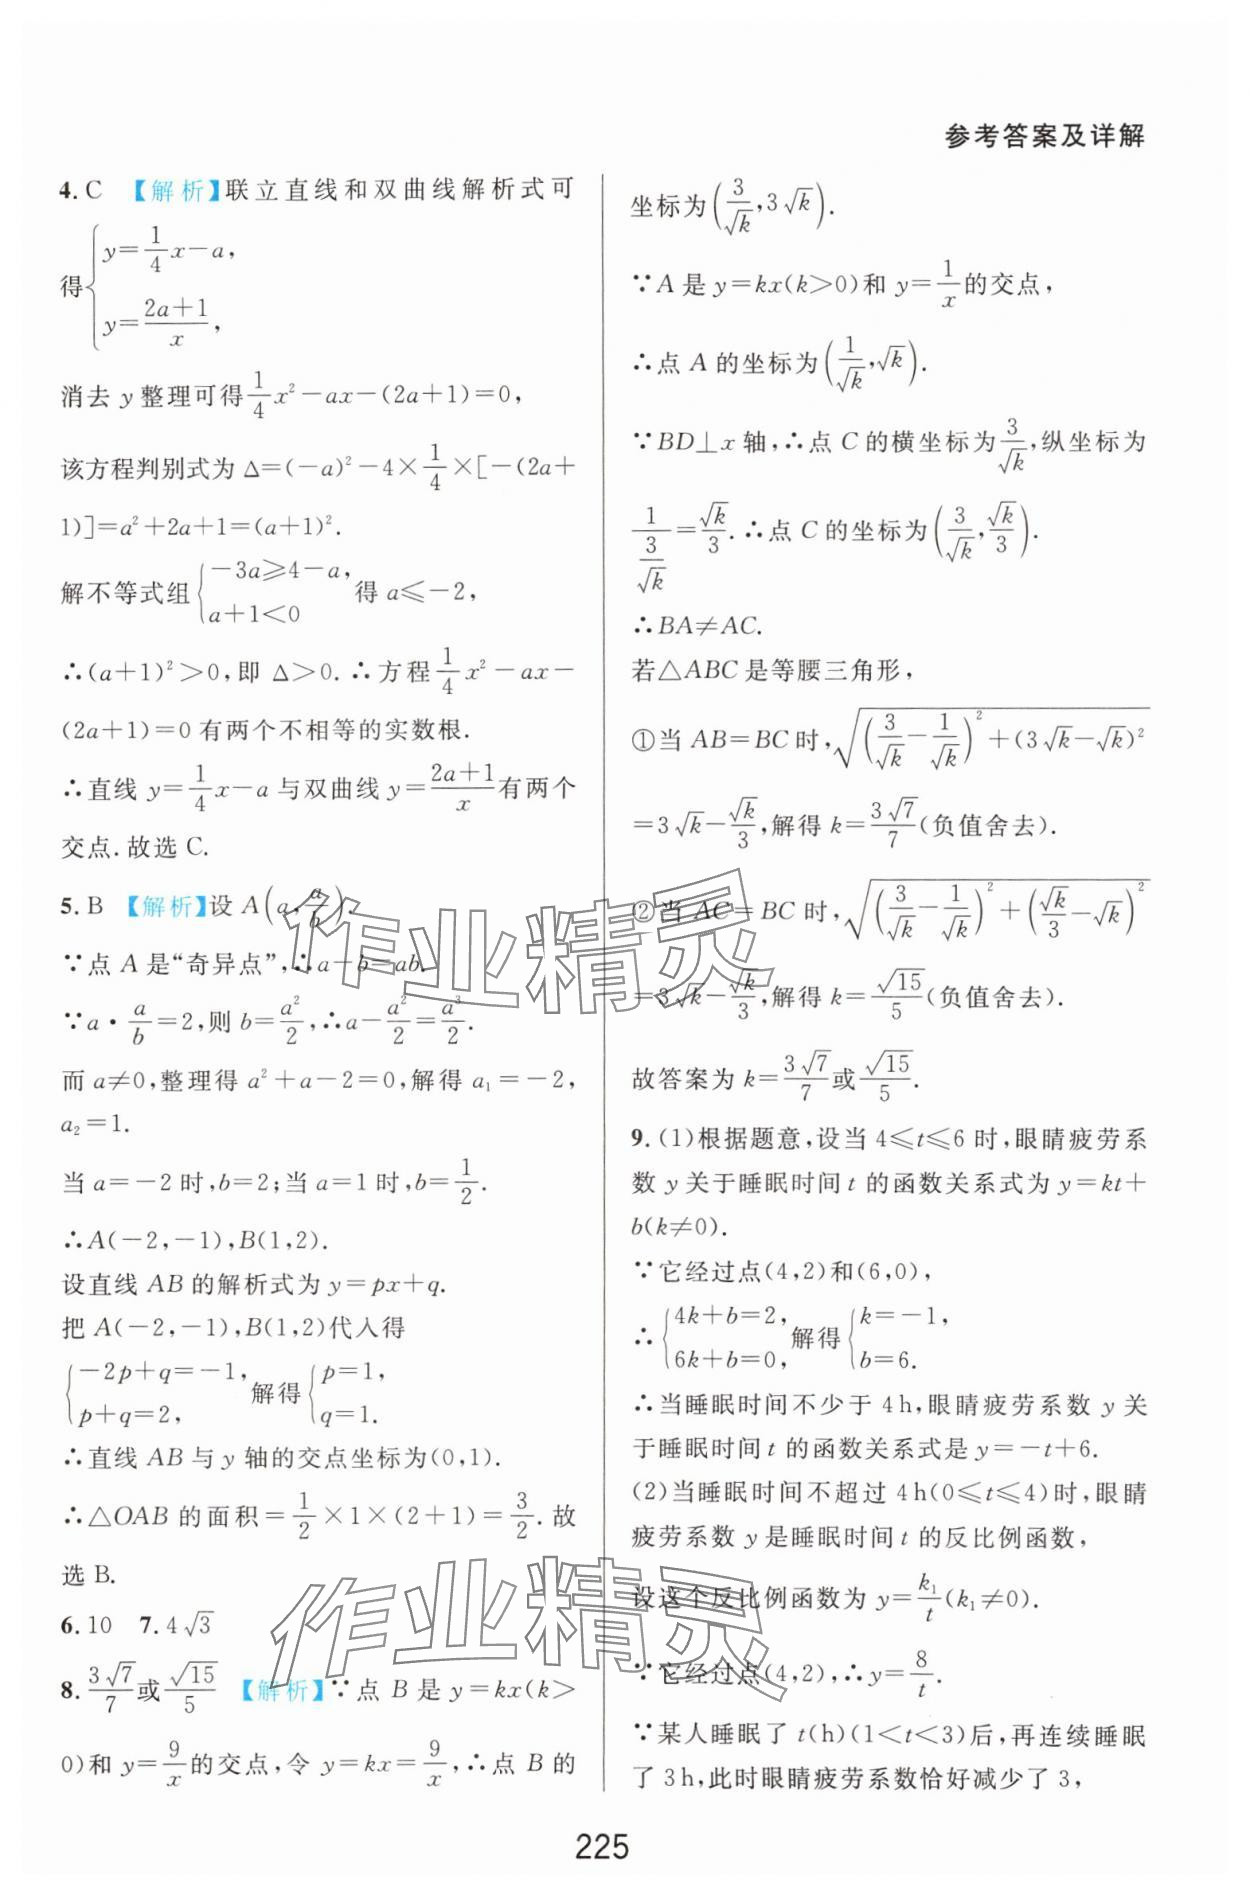 参考答案及详解
4. C 【解析】联立直线和双曲线解析式可
得{y=1/4x-a,
y=(2a+1)/x,
消去 y 整理可得1/4x²-ax-(2a+1)=0,
该方程判别式为 Δ=(-a)²-4×1/4×[-(2a+
1)]=a²+2a+1=(a+1)².
解不等式组{-3a≥4-a,
a+1<0 得 a≤-2,
∴(a+1)²>0,即 Δ>0.∴方程1/4x²-ax-
(2a+1)=0 有两个不相等的实数根.
∴直线 y=1/4x-a 与双曲线 y=(2a+1)/x有两个
交点.故选 C.
5. B 【解析】设 A(a,a/b).
∵点 A 是“奇异点”,∴a-b=ab.
∵a·a/b=2,则 b=a²/2,∴a-a²/2=a³/2.
而 a≠0,整理得 a²+a-2=0,解得 a₁=-2,
a₂=1.
当 a=-2 时,b=2;当 a=1 时,b=1/2.
∴A(-2,-1),B(1,2).
设直线 AB 的解析式为 y=px+q.
把 A(-2,-1),B(1,2)代入得
{-2p+q=-1,
p+q=2, 解得{p=1,
q=1.
∴直线 AB 与 y 轴的交点坐标为(0,1).
∴△OAB 的面积=1/2×1×(2+1)=3/2.故
选 B.
6. 10 7. 4√3
8. 3√7/7或√15/5 【解析】∵点 B 是 y=kx(k>
0)和 y=9/x的交点,令 y=kx=9/x,∴点 B 的
坐标为(3/√k,3√k).
∵A 是 y=kx(k>0)和 y=1/x的交点,
∴点 A 的坐标为(1/√k,√k).
∵BD⊥x 轴,∴点 C 的横坐标为3/√k,纵坐标为
1/(3/√k)=√k/3.∴点 C 的坐标为(3/√k,√k/3).
∴BA≠AC.
若△ABC 是等腰三角形,
①当 AB=BC 时,√((3/√k-1/√k)²+(3√k-√k)²)
=3√k-√k/3,解得 k=3√7/7(负值舍去).
②当 AC=BC 时,√((3/√k-1/√k)²+(√k/3-√k)²)
=3√k-√k/3,解得 k=√15/5(负值舍去).
故答案为 k=3√7/7或√15/5.
9. (1)根据题意,设当 4≤t≤6 时,眼睛疲劳系
数 y 关于睡眠时间 t 的函数关系式为 y=kt+
b(k≠0).
∵它经过点(4,2)和(6,0),
∴{4k+b=2,
6k+b=0, 解得{k=-1,
b=6.
∴当睡眠时间不少于 4 h,眼睛疲劳系数 y 关
于睡眠时间 t 的函数关系式是 y=-t+6.
(2)当睡眠时间不超过 4 h(0≤t≤4)时,眼睛
疲劳系数 y 是睡眠时间 t 的反比例函数,
设这个反比例函数为 y=k₁/t(k₁≠0).
∵它经过点(4,2),∴y=8/t.
∵某人睡眠了 t(h)(1<t<3)后,再连续睡眠
了 3 h,此时眼睛疲劳系数恰好减少了 3,
225
作业精灵
作业精灵